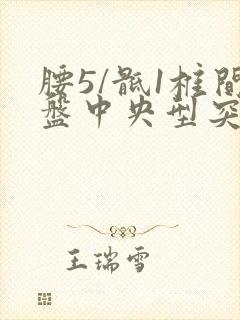 腰5/骶1椎間
盤中央型突
王瑞雪